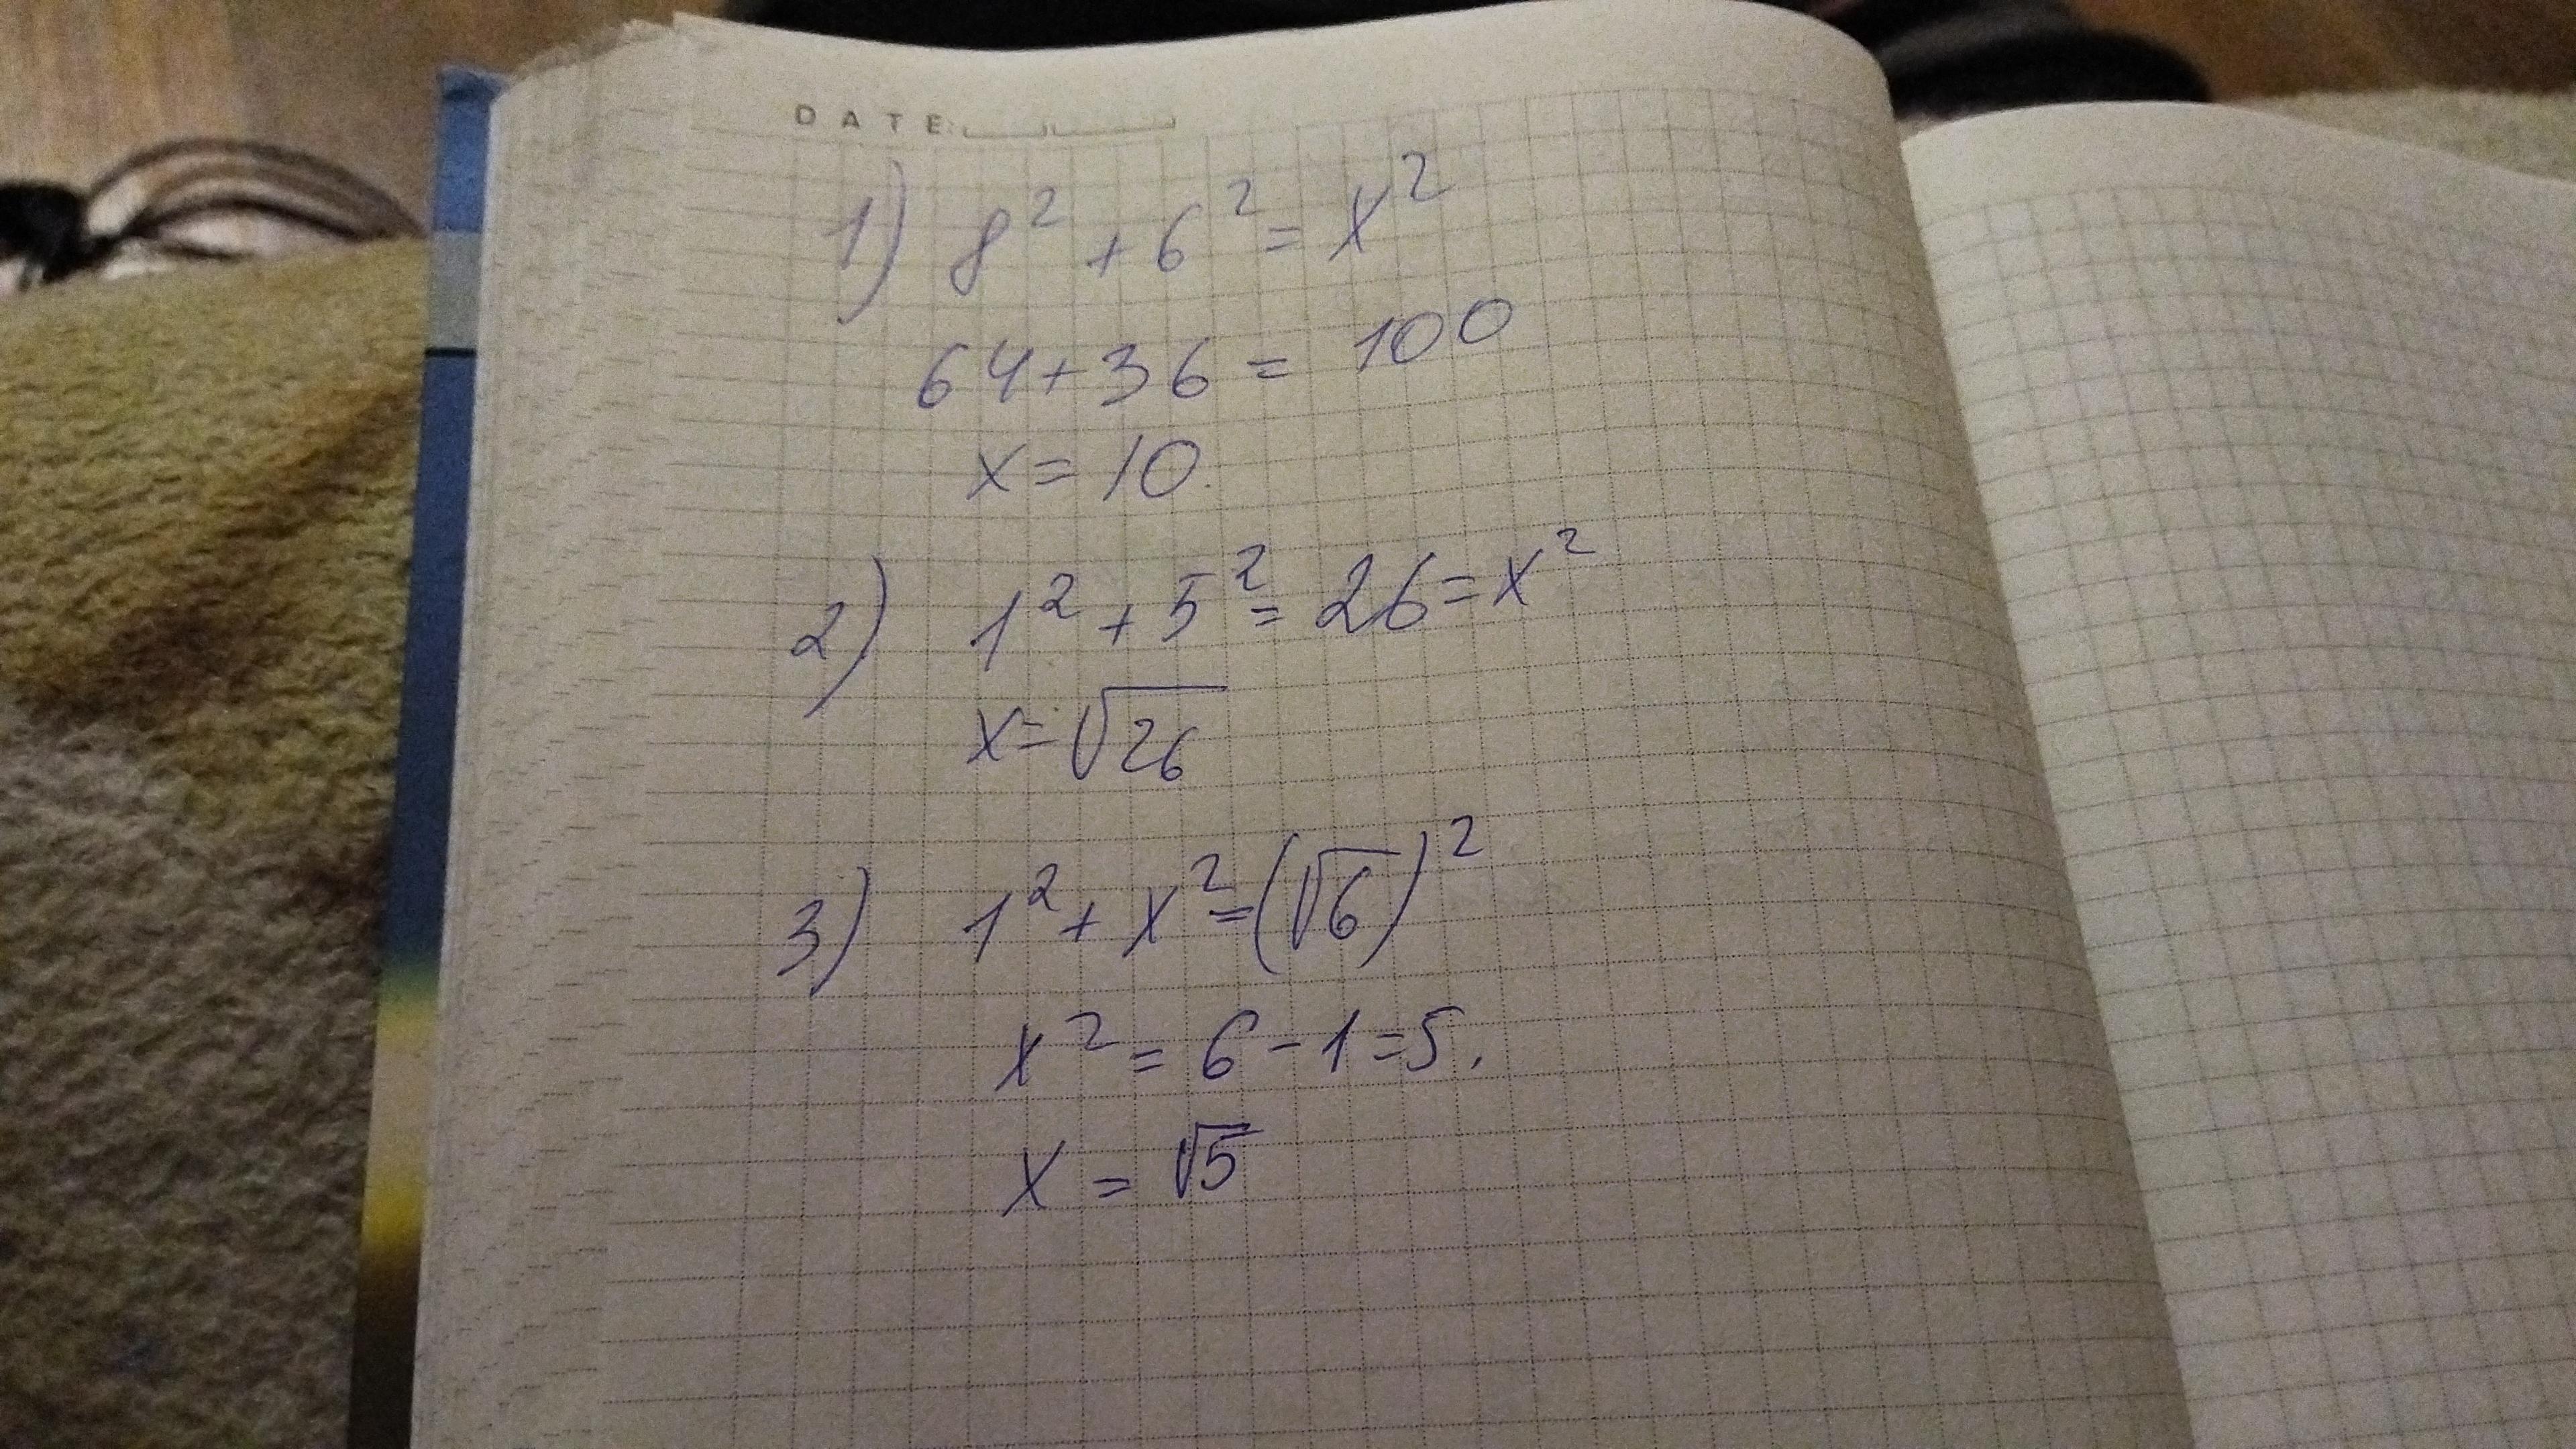 DATE
1) 8² + 6² = x²
64 + 36 = 100
x = 10.
2) 1² + 5² = 26 = x²
x = √26
3) 1² + x² = (√6)²
x² = 6 - 1 = 5.
x = √5